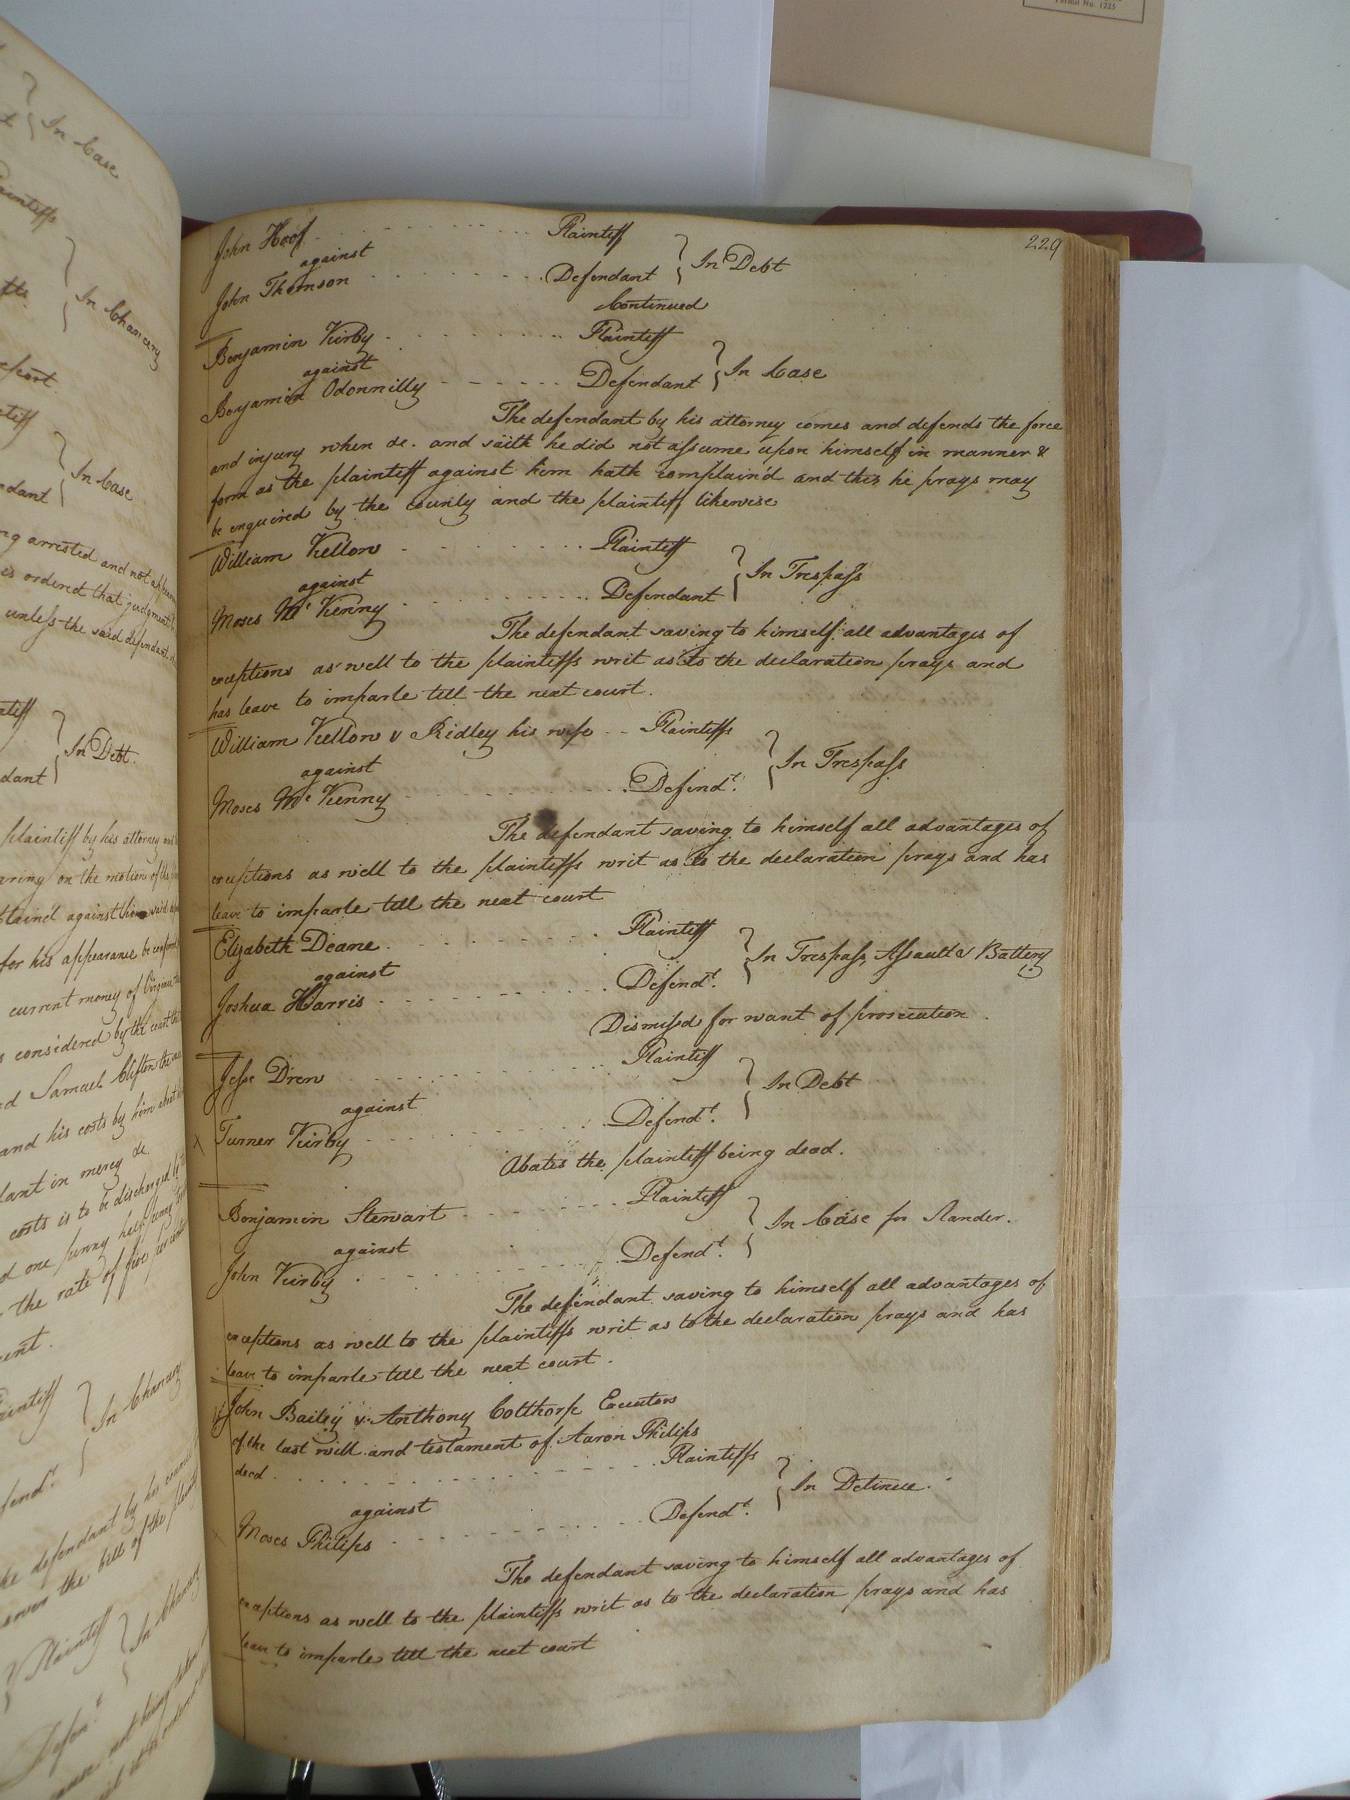 t } In Case
Plaintiffs
} In Chancery
report
} In Case
dant
ng arrested and not appear
is ordered that judgment
unless the said defendant
} In Debt.
dant
plaintiff by his attorney and
aring on the motion of the
against him said
for his appearance be
current money of Virginia
considered by the court
d Samuel Clifton the
and his costs by him about
dant in mercy &c
costs is to be discharged by
d one penny half penny
the rate of five per cent
ent.
Plaintiff } In Chancery
fend.t
he defendant by his council
answer the bill of the plaintiff
Plaintiff } In Chancery
Defen.t
229
John Hoof - - - Plaintiff
against } In Debt
John Thomson - - - Defendant
Continued
Benjamin Kirby - - - Plaintiff
against } In Case
Benjamin Odonnilly - - - Defendant
The defendant by his attorney comes and defends the force
and injury when &c. and saith he did not assume upon himself in manner &
form as the plaintiff against him hath complain'd and this he prays may
be enquired by the county and the plaintiff likewise
William Kellow - - - Plaintiff
against } In Trespass
Moses Mc Kenny - - - Defendant
The defendant saving to himself all advantages of
exceptions as well to the plaintiffs writ as to the declaration prays and
has leave to imparle till the next court.
William Kellow & Ridley his wife - - Plaintiffs
against } In Trespass
Moses Mc Kenny - - - Defend.t
The defendant saving to himself all advantages of
exceptions as well to the plaintiffs writ as to the declaration prays and has
leave to imparle till the next court
Elizabeth Deane - - - Plaintiff
against } In Trespass, Assault & Battery
Joshua Harris - - - Defend.t
Dismiss'd for want of prosecution.
Jesse Drew - - - Plaintiff
against } In Debt
Turner Kirby - - - Defend.t
Abates the plaintiff being dead.
Benjamin Stewart - - - Plaintiff
against } In Case for Slander.
John Kirby - - - Defend.t
The defendant saving to himself all advantages of
exceptions as well to the plaintiffs writ as to the declaration prays and has
leave to imparle till the next court.
John Bailey & Anthony Colthorp Executors
of the last will and testament of Aaron Philips
decd - - - Plaintiffs
against } In Detinue.
Moses Philips - - - Defend.t
The defendant saving to himself all advantages of
exceptions as well to the plaintiffs writ as to the declaration prays and has
leave to imparle till the next court